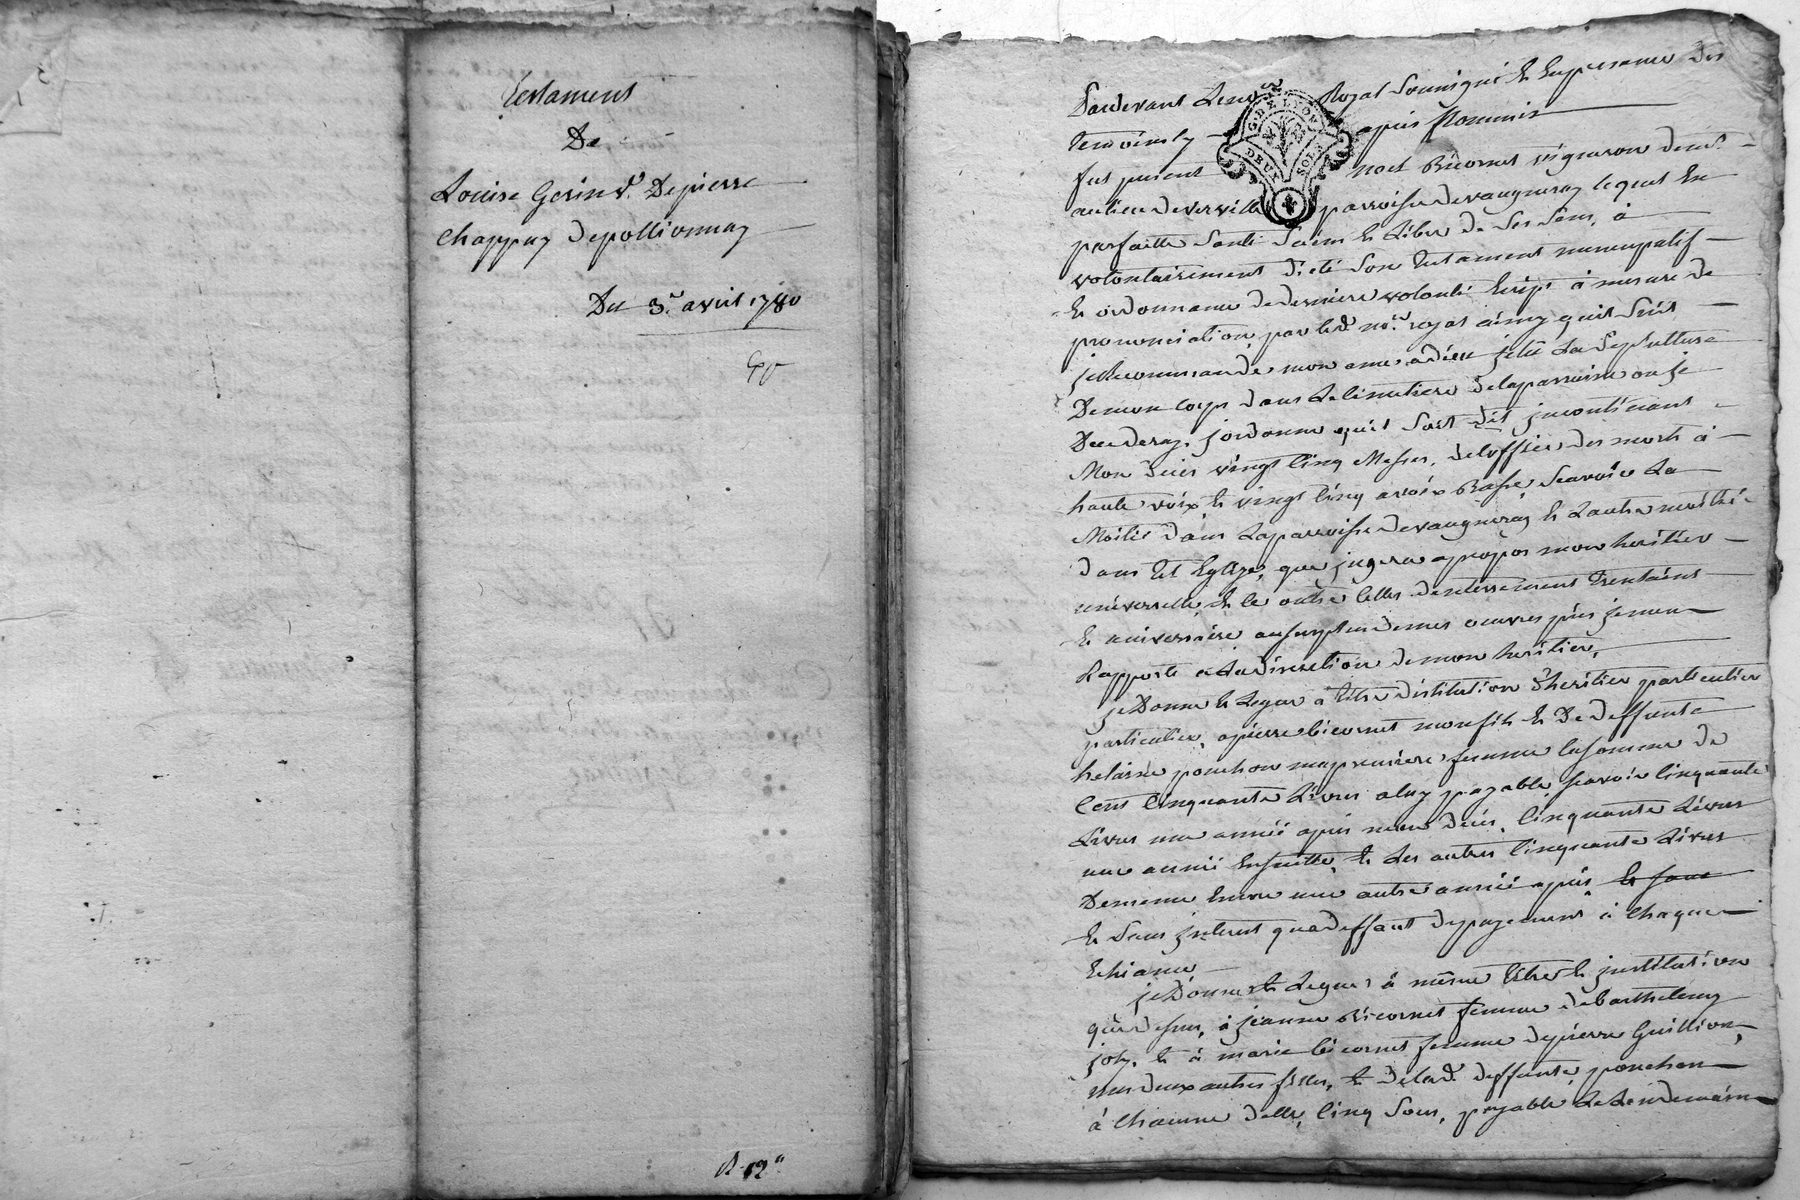 testament
De
Louise Gerin vᵉ. De pierre
Chappuy de pollionnay
Du 3.ᵉ avril 1780
R. 12ˢ
G. DE LYON
DEUX SOLS
Pardevant Le no.ʳᵉ Royal Soussigné et En presence des
temoins cy apres Nommés
fut present noel Bicornet vigneron dem.ᵗ
au lieu de verville parroisse de vaugneray lequel En
parfaitte Santé Sain et Libre de Ses Sens, à
volontairement dicté Son testament nuncupatif
et ordonnance de derniere volonté Ecript à mesure de
prononciation par led. no.ʳᵉ royal ainsy quil Suit
je Recommande mon ame a dieu jelis La Sepulture
De mon Corps dans Le Cimetiere de la parroisse ou je
Decederay, jordonne quil Soit dit jncontinant
Mon deces vingt Cinq Messes, de loffice des morts à
haute voix, et vingt Cinq a voix Basse, Scavoir La
Moitié dans La parroisse de vaugneray et Lautre moitié
dans tel Eglize, que jugera apropos mon heritier
universelle, et Ce outre Celles denterrement trentaine
et aniversaire au surplus de mes oeuvres pies je men
Rapporte a La discretion de mon heritier,
je Donne et Legue à titre distitution dheritier particulier
particulier, a pierre bicornet mon fils et De deffunte
helaine ponchon ma premiere femme la somme de
Cent Cinquante Livres a luy payable, scavoir Cinquante
Livres une année apres mon deces, Cinquante Livres
une année Ensuitte, et Les autres Cinquante Livres
De meme Encore une autre année apres, et sans
et Sans jnterest qua deffaut de payement à Chaque
Echiance,
je Donne et Legue à même titre et jnstitution
que dessus, à jeanne Bicornet femme de barthelemy
joly, et à marie bicornet femme de pierre Guillion,
mes deux autres filles, et de lad. deffunte ponchon
à Chacune delle, Cinq Sous, payable Le Lendemain